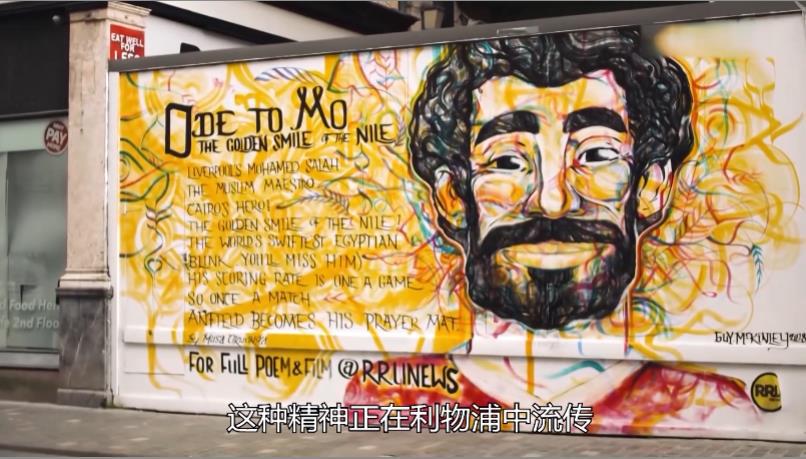 EAT WELL
FOR
LESS
PAY
ODE TO MO
THE GOLDEN SMILE OF THE NILE
LIVERPOOL'S MOHAMED SALAH
THE MUSLIM MAESTRO
CAIRO'S HERO!
THE GOLDEN SMILE OF THE NILE!
THE WORLD'S SWIFTEST EGYPTIAN
(BLINK YOU'LL MISS HIM)
HIS SCORING RATE IS ONE A GAME
SO ONCE A MATCH
ANFIELD BECOMES HIS PRAYER MAT.
FOR FULL POEM & FILM @RRUNEWS
GUY MCKINLEY
RRU
2nd Floo
这种精神正在利物浦中流传